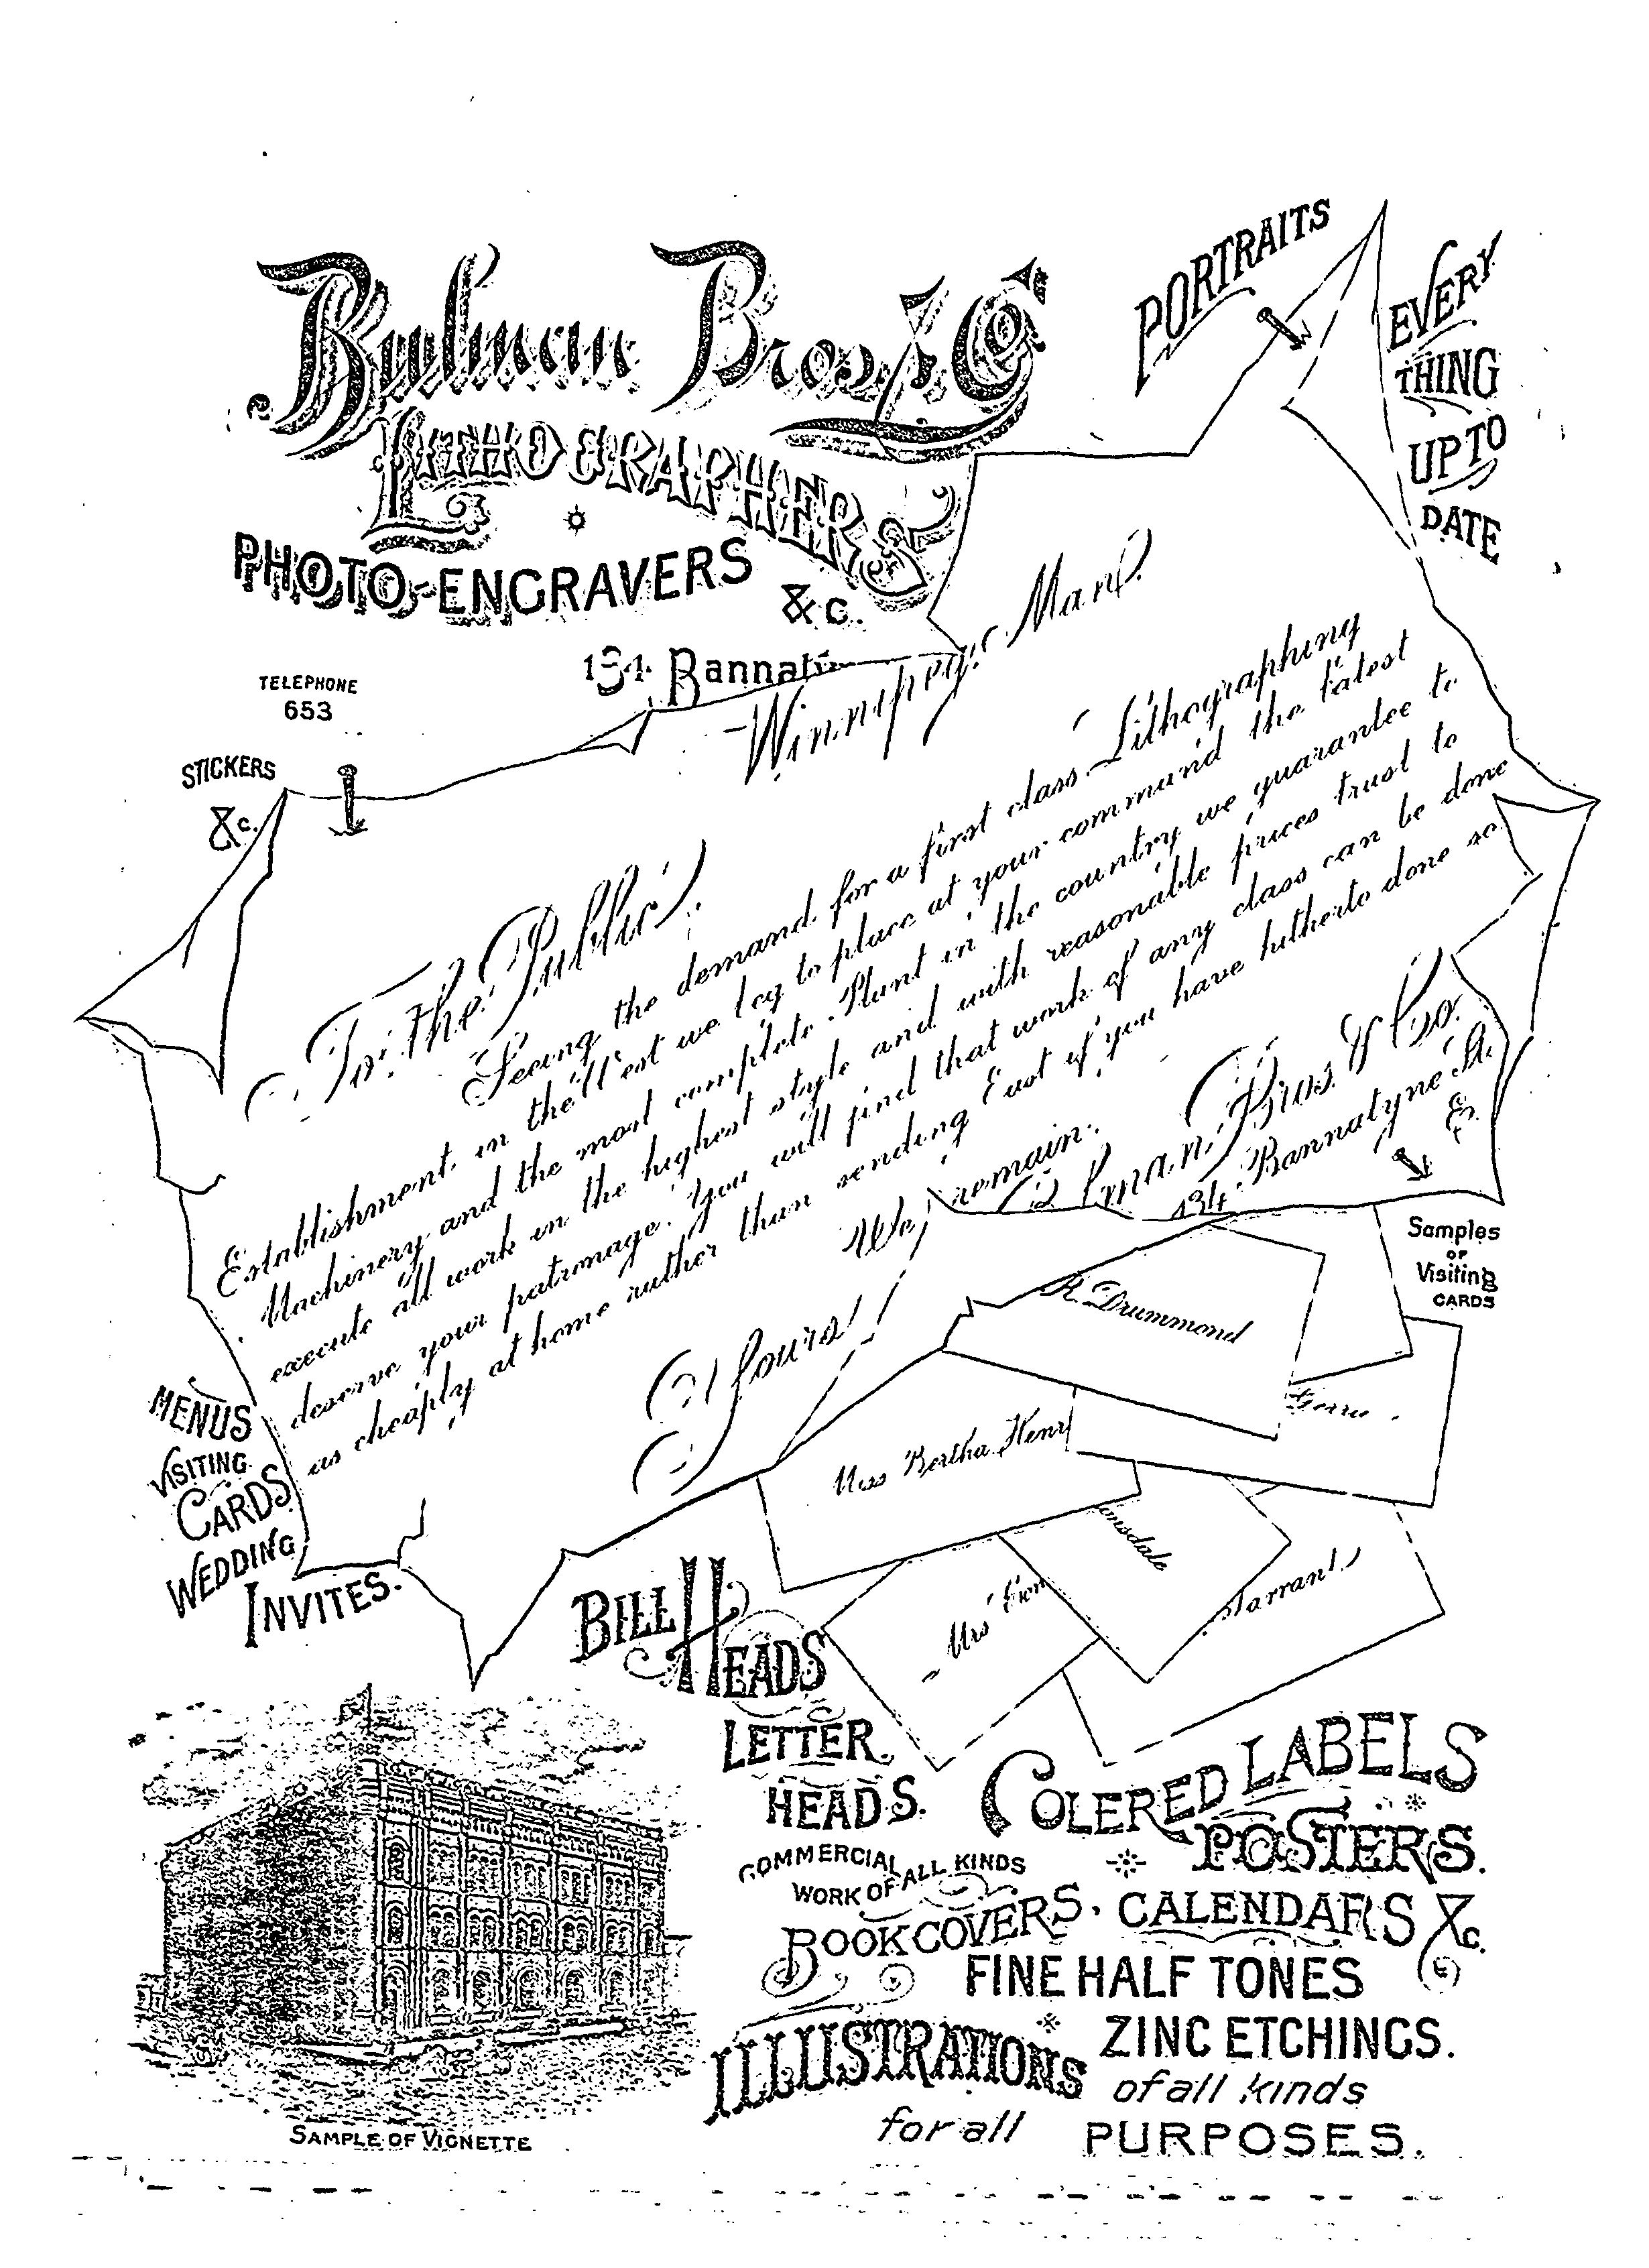 Bulman Bros. & Co.
LITHOGRAPHERS
PHOTO-ENGRAVERS
&c.
134 Bannaty
TELEPHONE
653
STICKERS
&c.
PORTRAITS
EVERY
THING
UP TO
DATE
Winnipeg, Man.
To the Public,
Seeing the demand for a first class Lithographing
Establishment in the West we beg to place at your command the latest
Machinery and the most complete Plant in the country we guarantee to
execute all work in the highest style and with reasonable prices trust to
deserve your patronage. You will find that work of any class can be done
as cheaply at home rather than sending East as you have hitherto done so.
We remain.
Yours
Bulman Bros & Co.
134 Bannatyne St.
E.
Samples
OF
Visiting
CARDS
R. Drummond
Miss Bertha Henry
nsdale
Mrs
Tarrant
MENUS
VISITING
CARDS
WEDDING
INVITES.
BILL HEADS
LETTER
HEADS.
COMMERCIAL
WORK OF ALL KINDS
COLERED LABELS
POSTERS.
BOOK COVERS. CALENDARS &c.
FINE HALF TONES
ILLUSTRATIONS
for all
ZINC ETCHINGS.
of all kinds
PURPOSES.
SAMPLE OF VIGNETTE